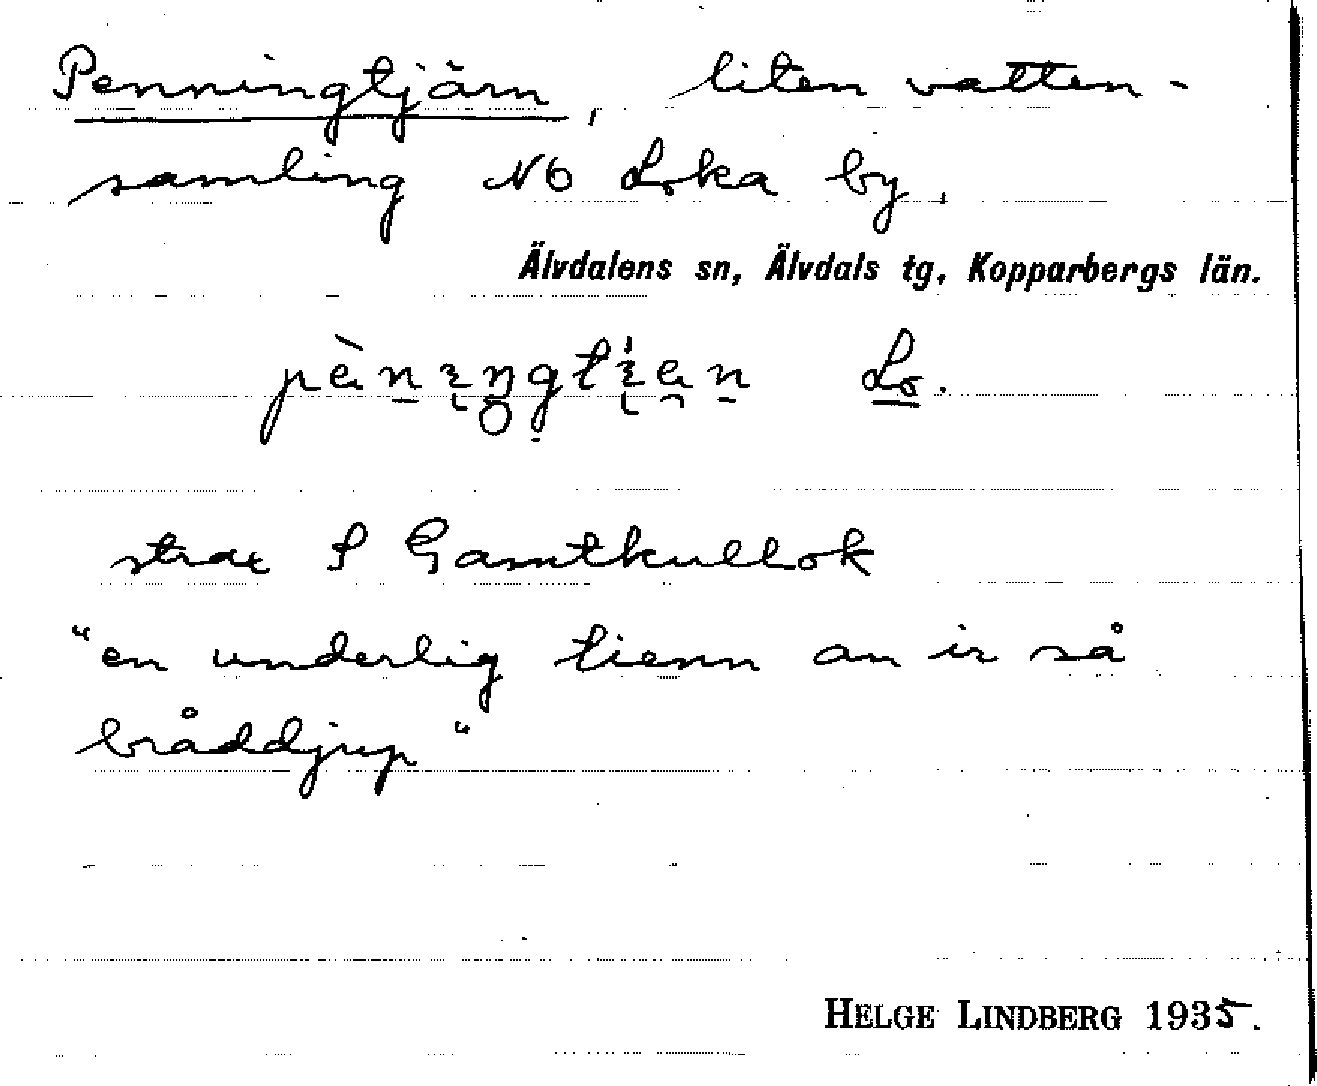 Penningtjärn, liten vatten-
samling NO Loka by.
Älvdalens sn, Älvdals tg, Kopparbergs län.
Lo.
strax S Gamtkullok
"en underlig tienn an ir så
bråddjup"
HELGE LINDBERG 1935.